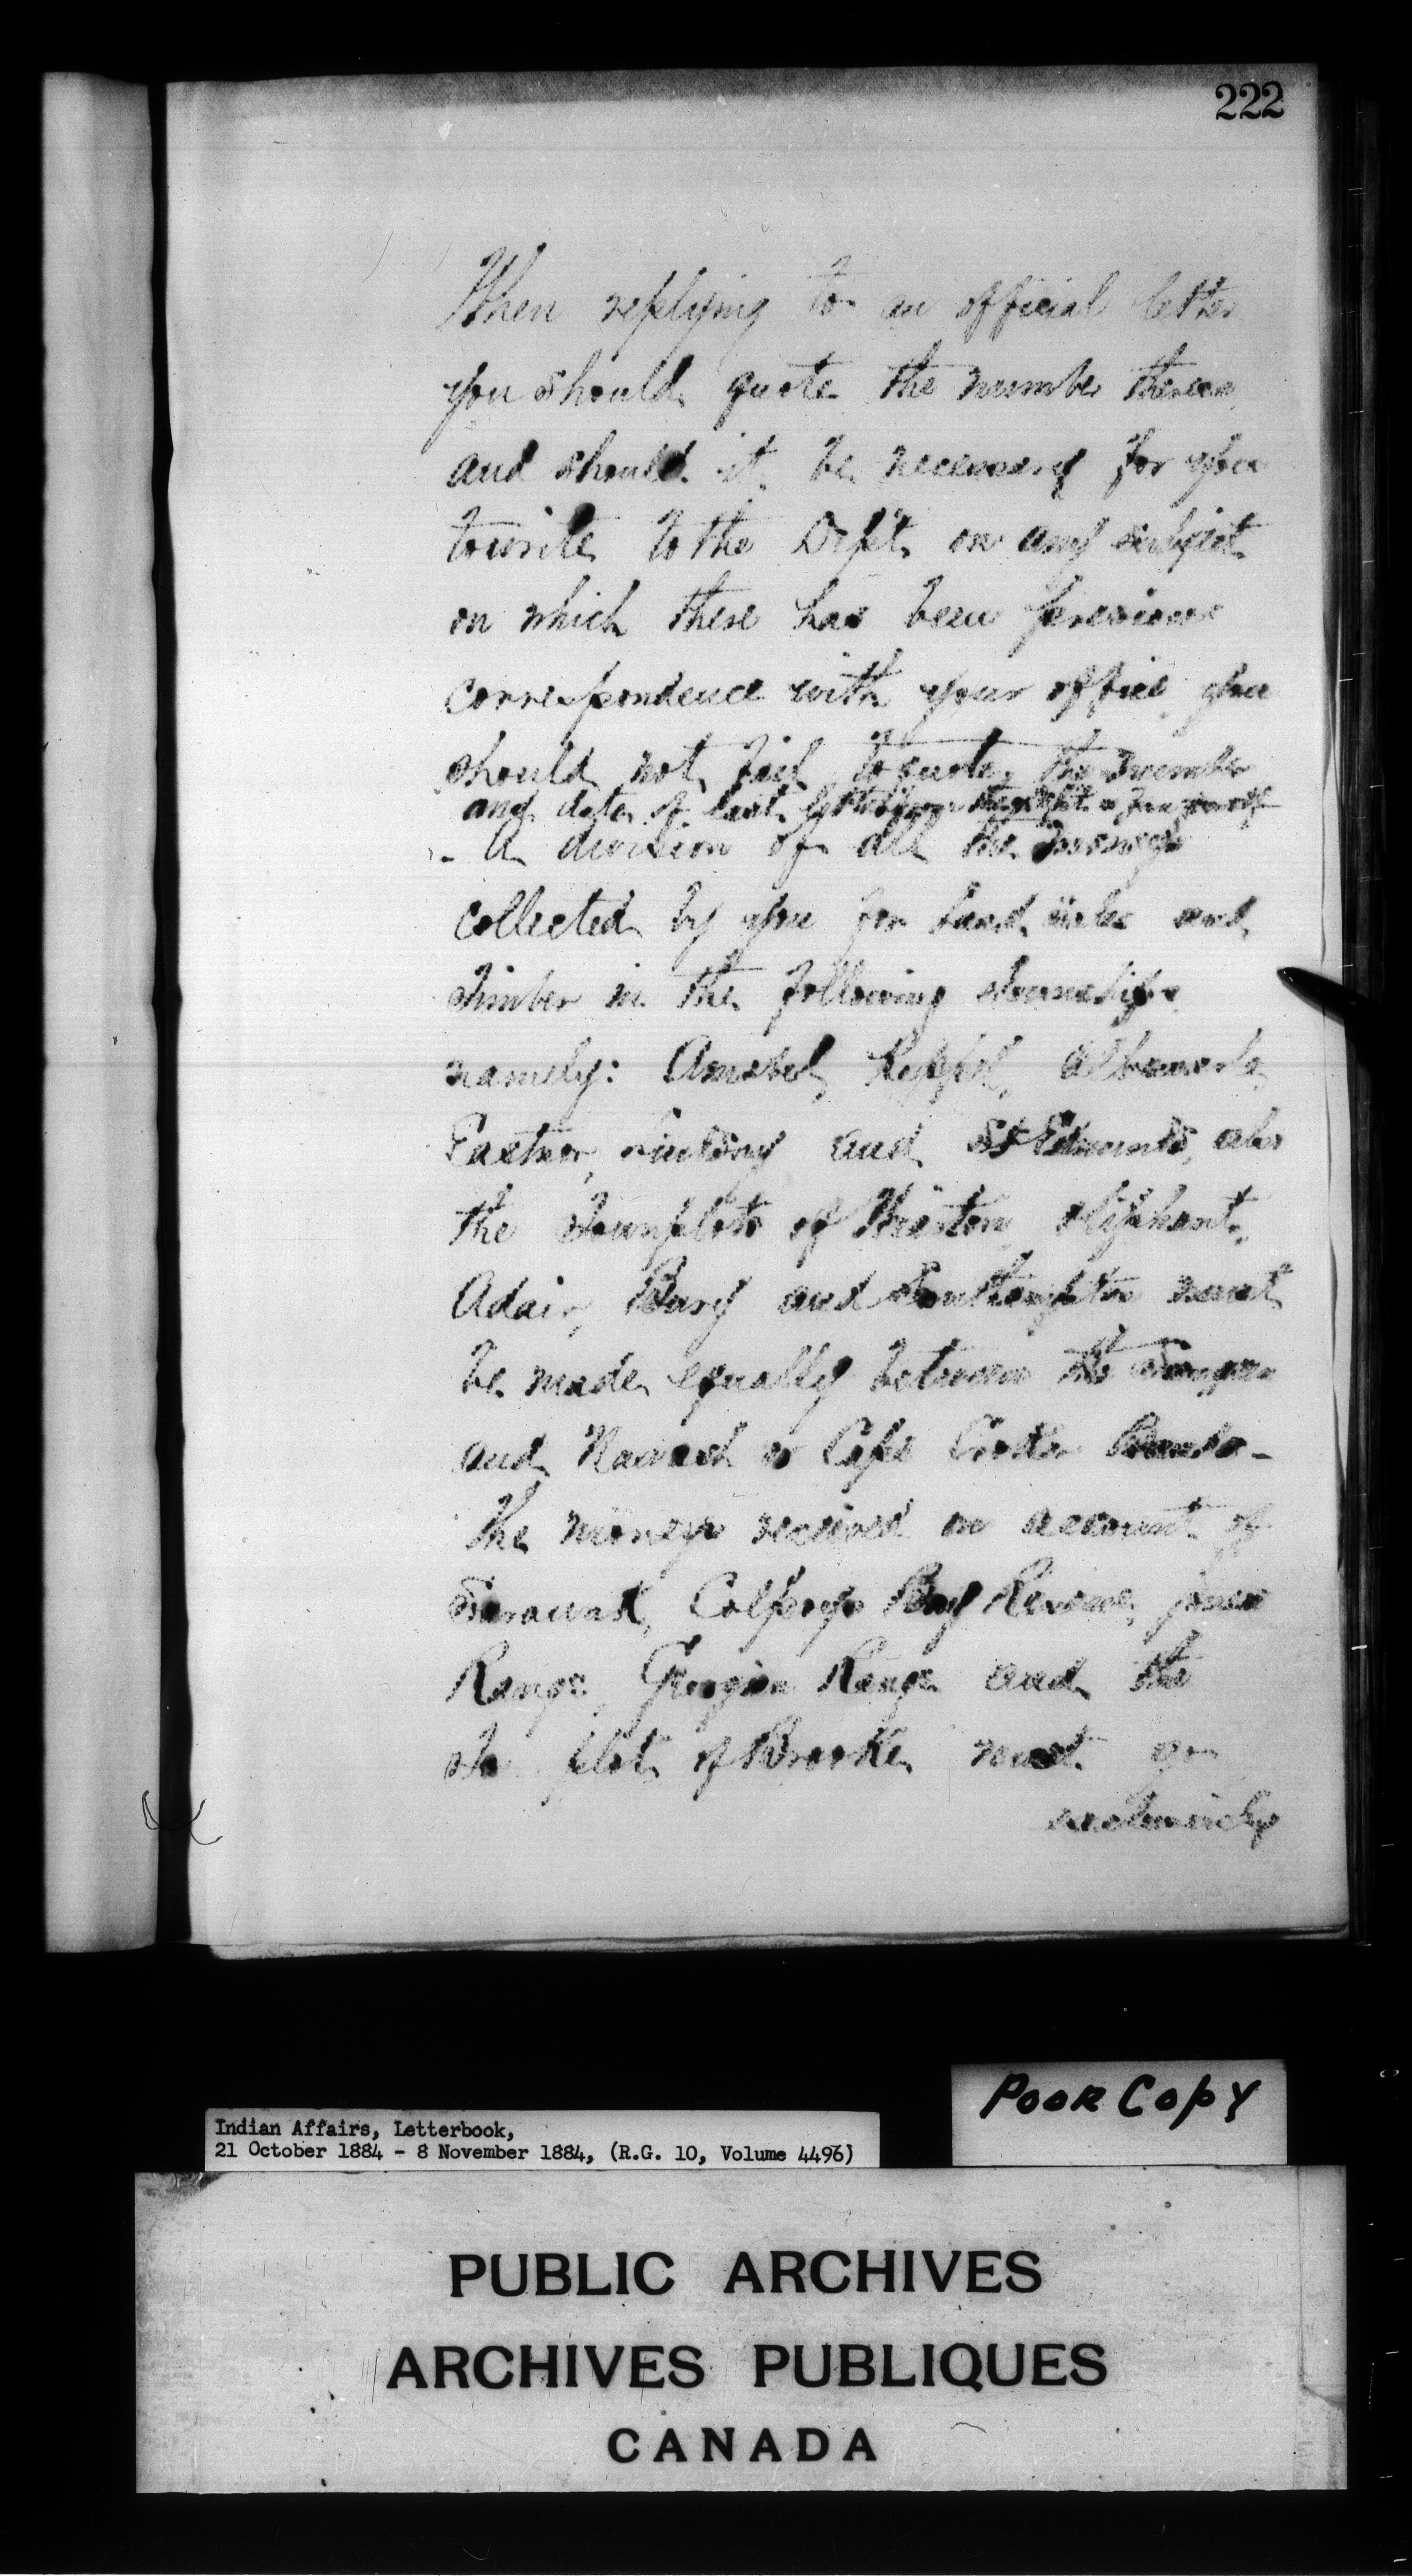 222
When replying to an official letter
you should quote the number thereon
and should it be necessary for you
to write to the Dept. on any subject
on which there has been previous
correspondence with your office you
should not fail to quote the number
and date of last letter
- A division of all the moneys
collected by you for Land sales and
timber in the following townships
namely: Amabel, Keppel, Albemarle,
Eastnor, Lindsay and St Edmunds, also
the Townplots of Wiarton, Oliphant,
Adair, Bury and Southampton must
be made equally between the Saugeen
and Nawash or Cape Croker Bands-
The moneys received on account of
Sarawak, Colpoys Bay Reserve, Jones
Range, Georgian Range and the
plot of Brooke must go
exclusively
Poor Copy
Indian Affairs, Letterbook,
21 October 1884 - 8 November 1884, (R.G. 10, Volume 4496)
PUBLIC ARCHIVES
ARCHIVES PUBLIQUES
CANADA